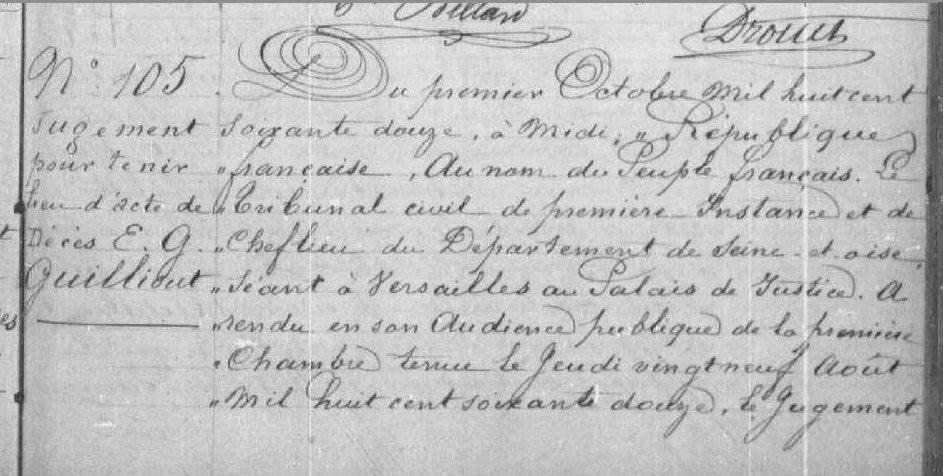 Drouet
N° 105
Jugement
pour tenir
lieu d'acte de
Décès E. G.
Guilliout
Du premier Octobre Mil huit cent
Soixante douze, à Midi, „ République
„ française, Au nom du Peuple français. Le
„ Tribunal civil de première Instance et de
„ Cheflieu du Département de Seine-et-oise,
„ Séant à Versailles au Palais de Justice. A
„ rendu en son Audience publique de la première
„ Chambre tenue le Jeudi vingt neuf Août
„ Mil huit cent soixante douze, le Jugement